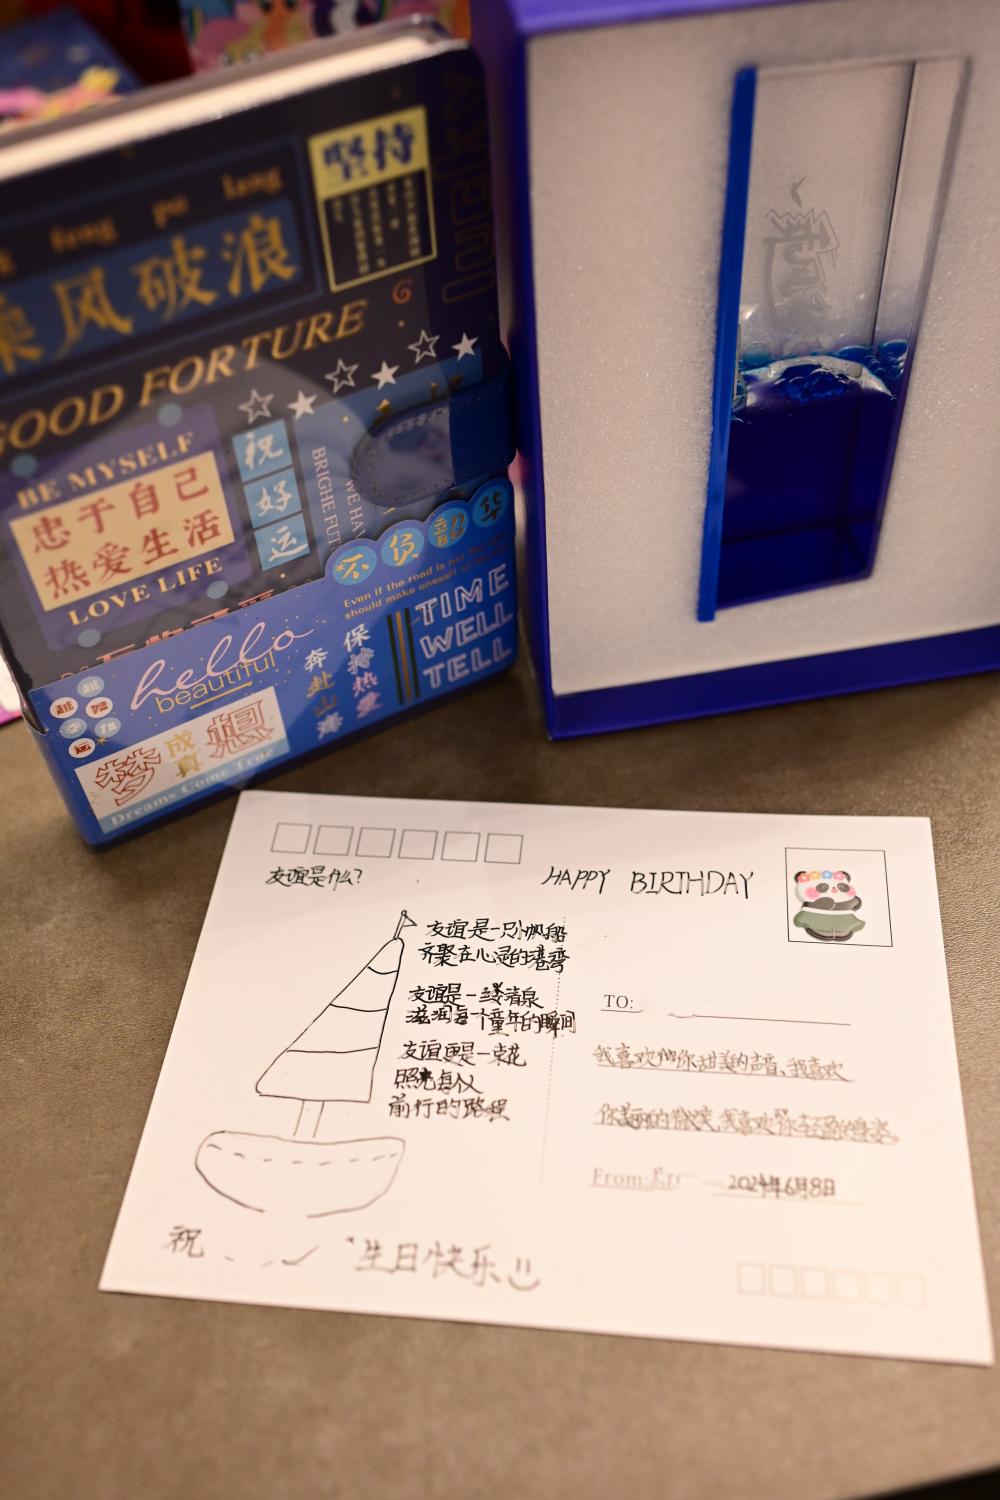 坚持
LUCKY
feng po lang
乘风破浪
GOOD FORTURE
BE MYSELF
忠于自己
热爱生活
LOVE LIFE
祝
好
运
BRIGHE FUT
WE HA
不负韶华
Even if the road is not
should make oneself
TIME
WELL
TELL
hello
beautiful
保持热爱
奔赴山海
越努
运
梦想
成真
Dreams Come True
友谊是什么?
HAPPY BIRTHDAY
友谊是一只小帆船
齐聚在心灵的港弯
友谊是一缕清泉
滋润每一个童年的瞬间
友谊更是一束花
照亮每人
前行的路程
TO:
我喜欢你甜美的声音、我喜欢
你美丽的微笑,我喜欢你轻盈的身姿。
From:
2024年6月8日
祝
生日快乐